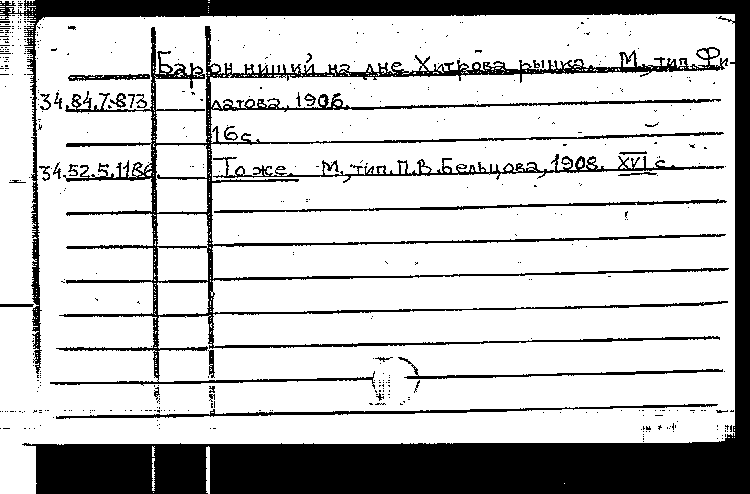 Барон нищий на дне Хитрова рынка. М., тип. Фи-
34.84.7.873 латова, 1906.
16с.
34.52.5.1186. То же. М., тип. П.В. Бельцова, 1908. XVI с.